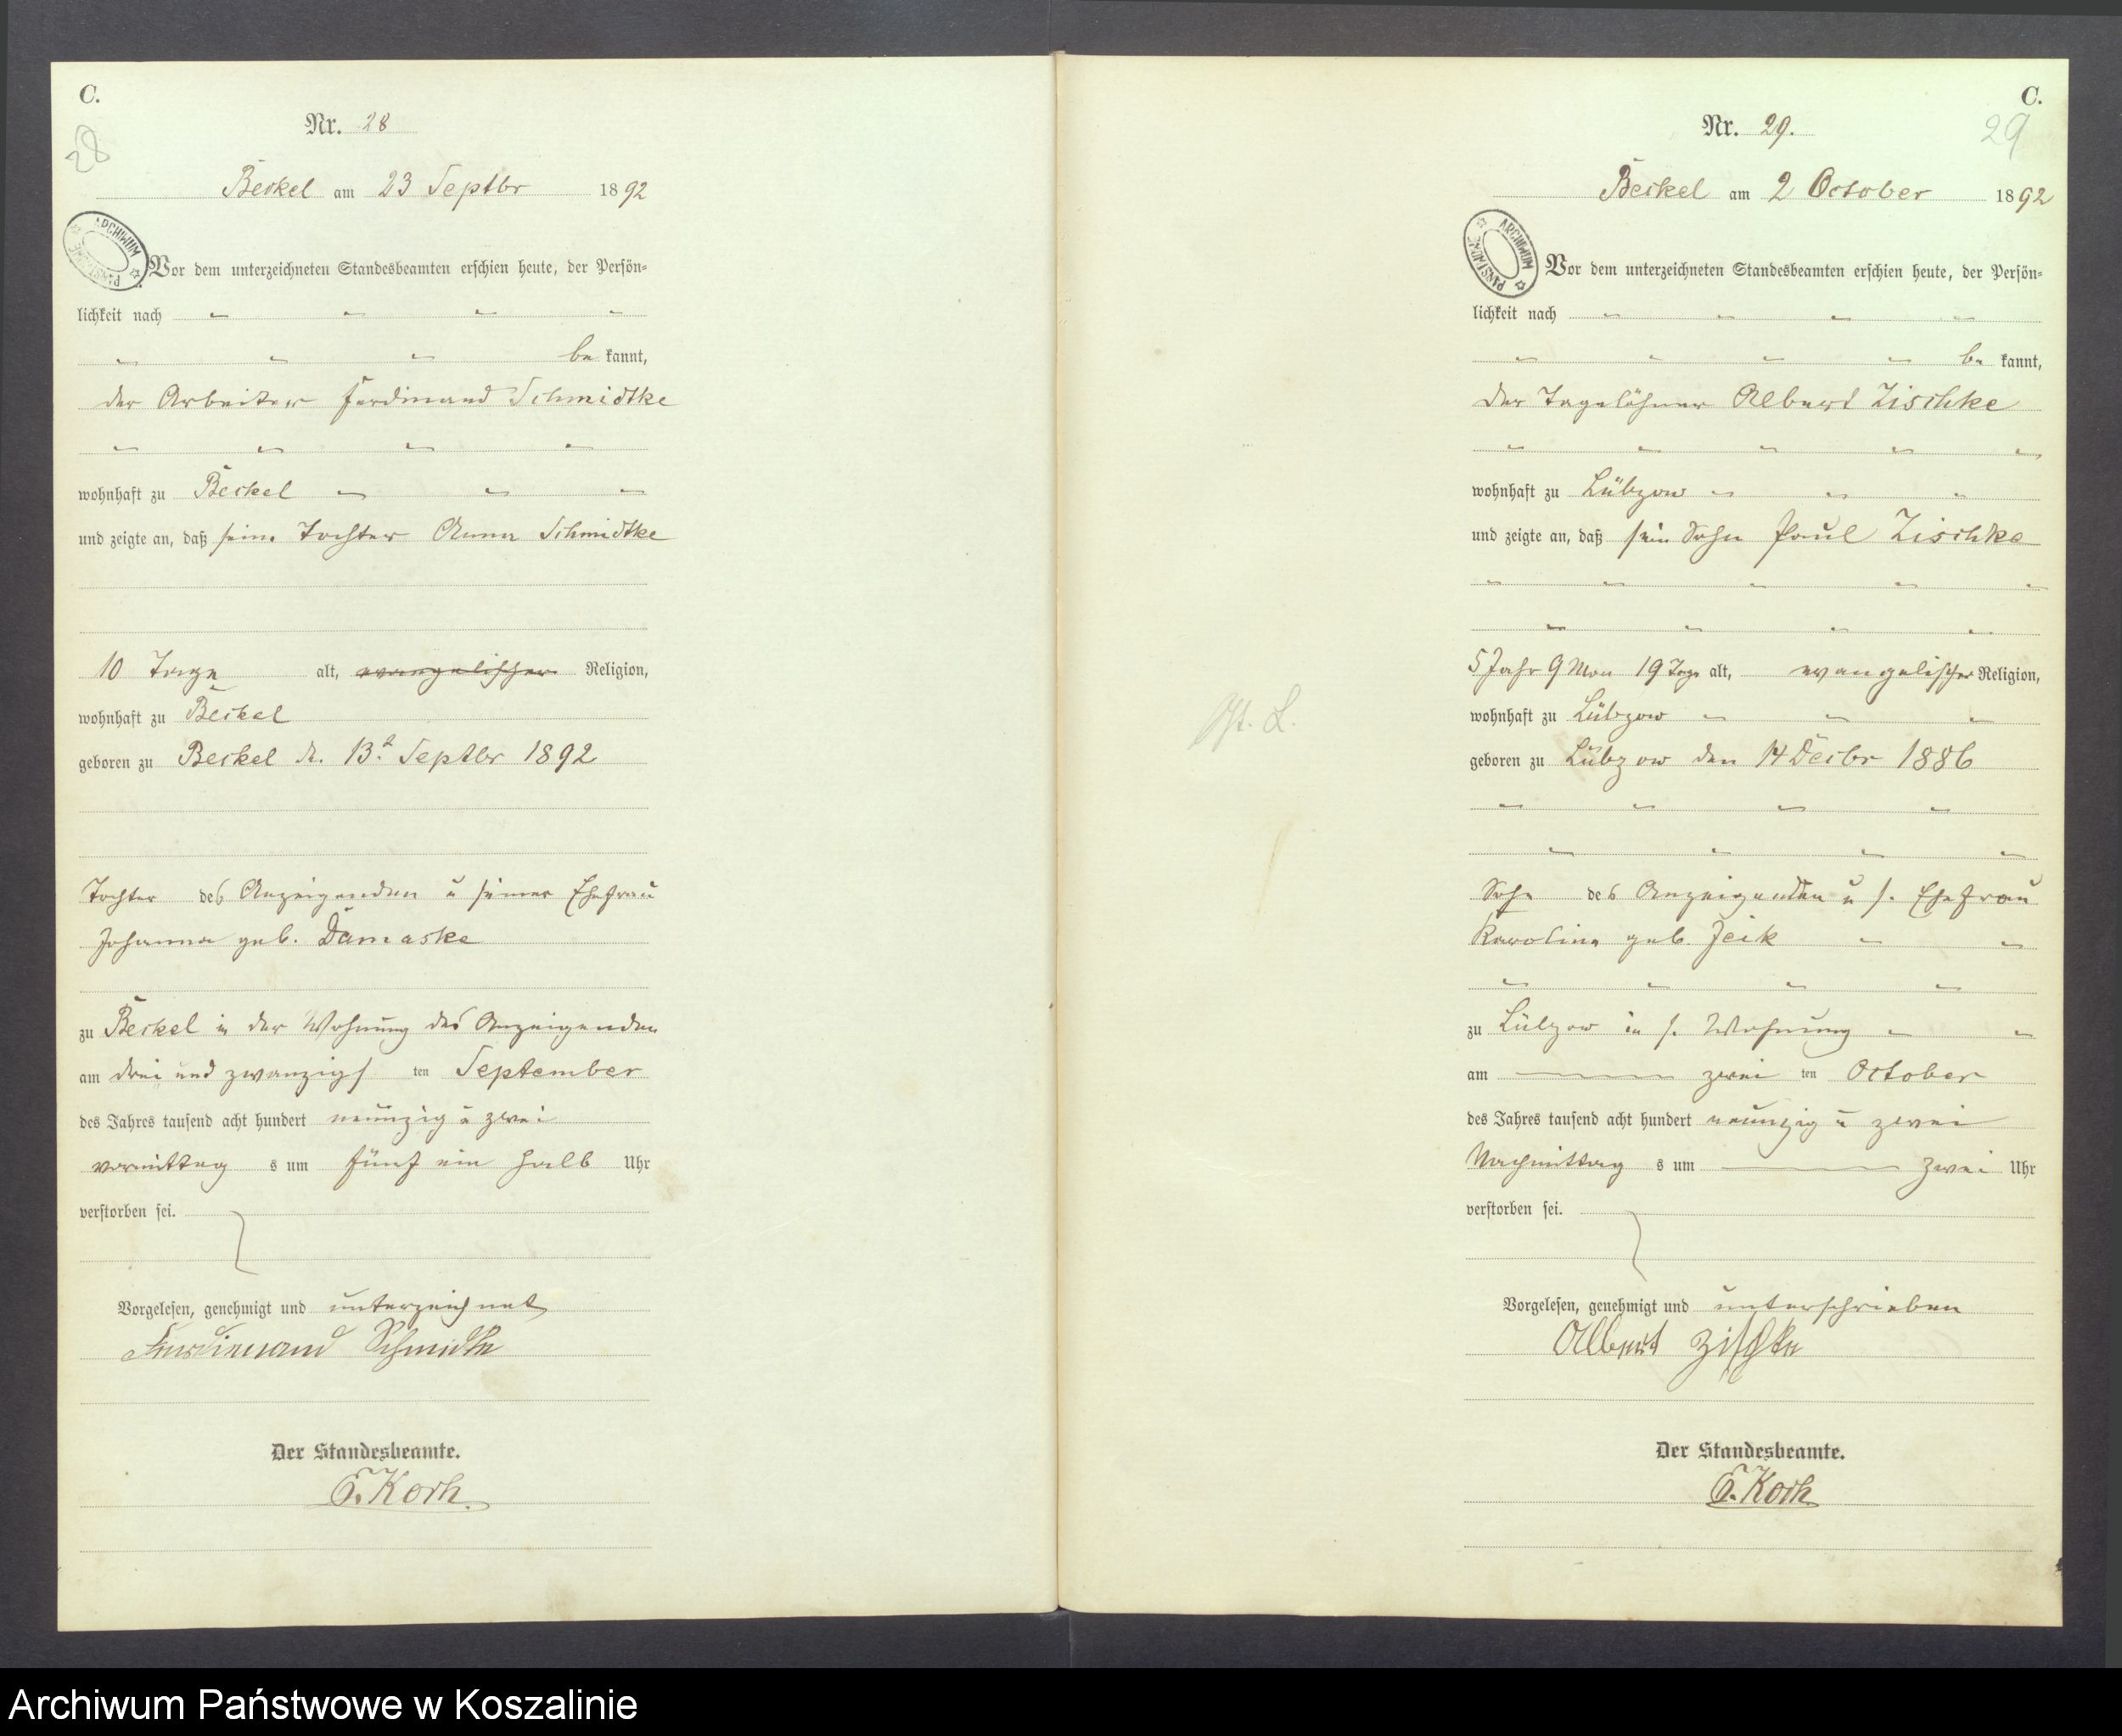 C.
28
Nr. 28
Beckel am 23 Septbr 1892
ARCHIWUM PAŃSTWOWE
Vor dem unterzeichneten Standesbeamten erschien heute, der Persön=
lichkeit nach
be kannt,
der Arbeiter Ferdinand Schmidtke
wohnhaft zu Beckel
und zeigte an, daß seine Tochter Anna Schmidtke
10 Tage alt, evangelischer Religion,
wohnhaft zu Beckel
geboren zu Beckel d. 13t Septbr 1892
Tochter des Anzeigenden u seiner Ehefrau
Johanna geb. Damaske
zu Beckel in der Wohnung des Anzeigenden
am drei und zwanzigs ten September
des Jahres tausend acht hundert neunzig u zwei
vormittag s um fünf ein halb Uhr
verstorben sei.
Vorgelesen, genehmigt und unterzeichnet
Ferdinand Schmidtke
Der Standesbeamte.
E. Koch
C.
29
Nr. 29.
Beckel am 2 October 1892
ARCHIWUM PAŃSTWOWE
Vor dem unterzeichneten Standesbeamten erschien heute, der Persön=
lichkeit nach
be kannt,
der Tagelöhner Albert Zischke
wohnhaft zu Lübzow
und zeigte an, daß sein Sohn Paul Zischke
5 Jahr 9 Mon 19 Tage alt, evangelischer Religion,
wohnhaft zu Lübzow
geboren zu Lübzow den 14 Decbr 1886
Sohn des Anzeigenden u s. Ehefrau
Karoline geb. Jeik
zu Lübzow in s. Wohnung
am zwei ten October
des Jahres tausend acht hundert neunzig u zwei
Nachmittag s um zwei Uhr
verstorben sei.
Vorgelesen, genehmigt und unterschrieben
Albert Zischke
Der Standesbeamte.
E. Koch
Archiwum Państwowe w Koszalinie